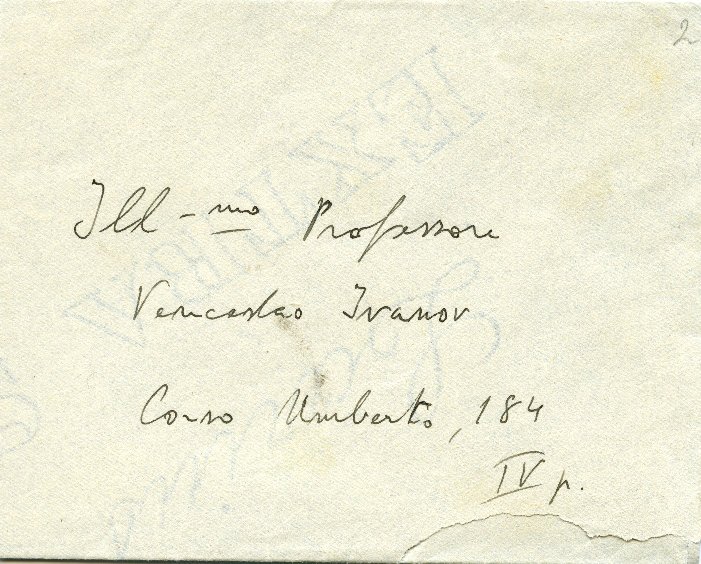 2
Ill-mo Professore
Venceslao Ivanov
Corso Umberto, 184
IV p.